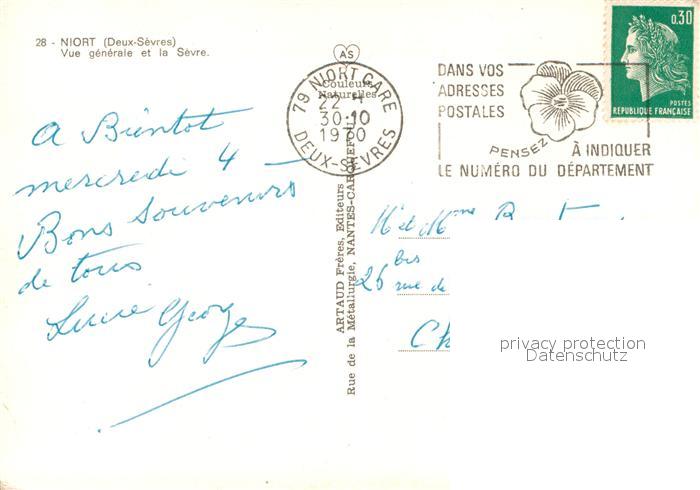 28 - NIORT (Deux-Sèvres)
Vue générale et la Sèvre.
A Bientot
mercredi 4 —
Bons Souvenirs
de tous
George
AS
Couleurs
Naturelles
79 NIORT GARE
22 - H
30-10
1970
DEUX-SEVRES
ARTAUD Frères, Editeurs
Rue de la Métallurgie, NANTES-CAR
DANS VOS
ADRESSES
POSTALES
PENSEZ
À INDIQUER
LE NUMÉRO DU DÉPARTEMENT
0,30
POSTES
REPUBLIQUE FRANÇAISE
M et Mme R
bis
26 rue de
Ch
privacy protection
Datenschutz